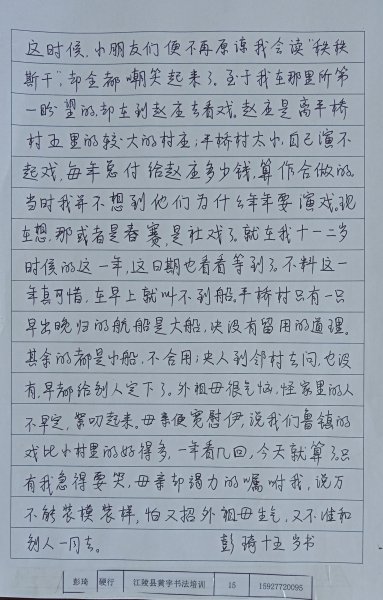 这时候,小朋友们便不再原谅我会读"秩秩
斯干",却全都嘲笑起来了。至于我在那里所第
一盼望的,却在到赵庄去看戏。赵庄是离平桥
村五里的较大的村庄;平桥村太小,自己演不
起戏,每年总付给赵庄多少钱,算作合做的。
当时我并不想到他们为什么年年要演戏。现
在想,那或者是春赛,是社戏了。就在我十一二岁
时候的这一年,这日期也看看等到了。不料这一
年真可惜,在早上就叫不到船。平桥村只有一只
早出晚归的航船是大船,决没有留用的道理。
其余的都是小船,不合用;央人到邻村去问,也没
有,早都给别人定下了。外祖母很气恼,怪家里的人
不早定,絮叨起来。母亲便宽慰伊,说我们鲁镇的
戏比小村里的好得多,一年看几回,今天就算了。只
有我急得要哭,母亲却竭力的嘱咐我,说万
不能装模装样,怕又招外祖母生气,又不准和
别人一同去。 彭琦十五岁书
彭琦 硬行 江陵县黄宇书法培训 15 15927720095